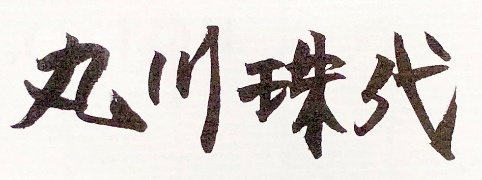 丸川珠代